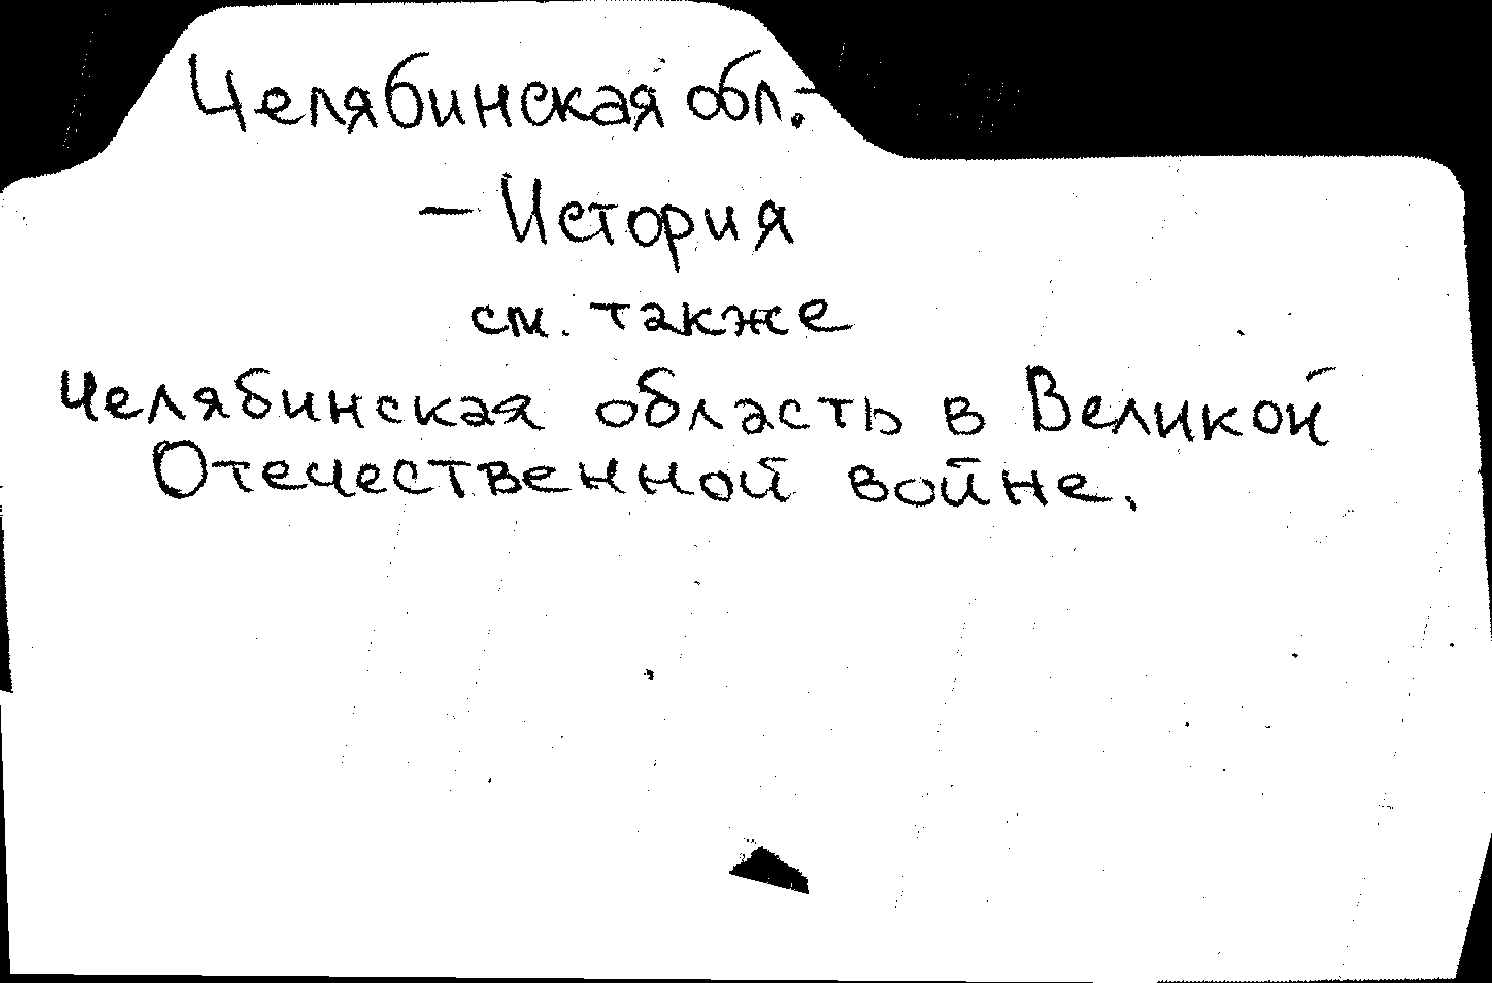 Челябинская обл.-
- История
см. также
Челябинская область в Великой
Отечественной войне.